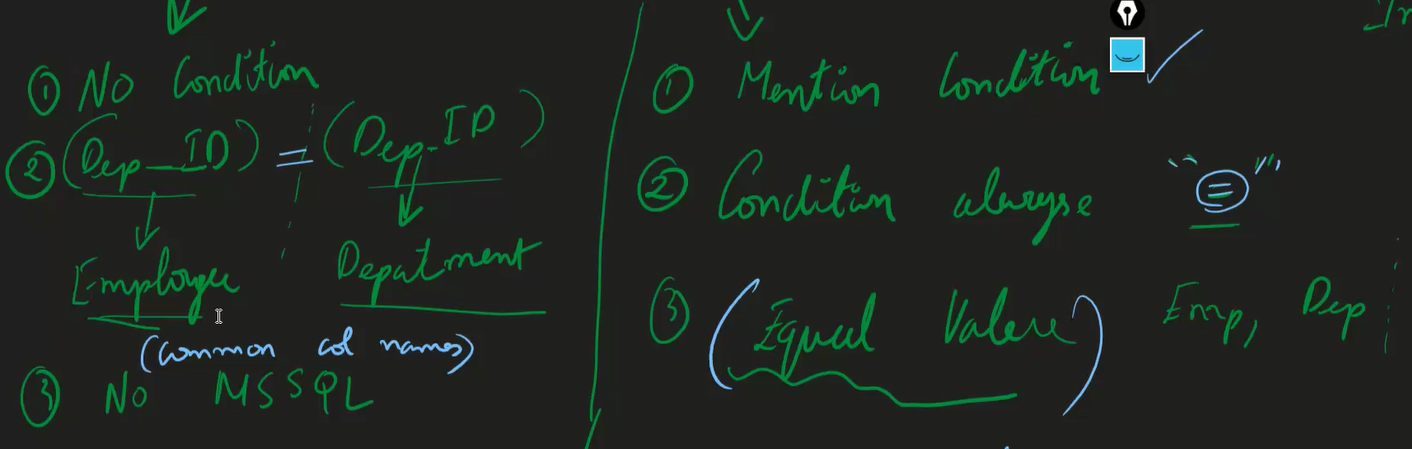 ① No Condition
② (Dep_ID) = (Dep-ID)
Employee Department
(common col names)
③ No MSSQL
① Mention Condition
② Condition alwayse "="
③ (Equal Value) Emp, Dep